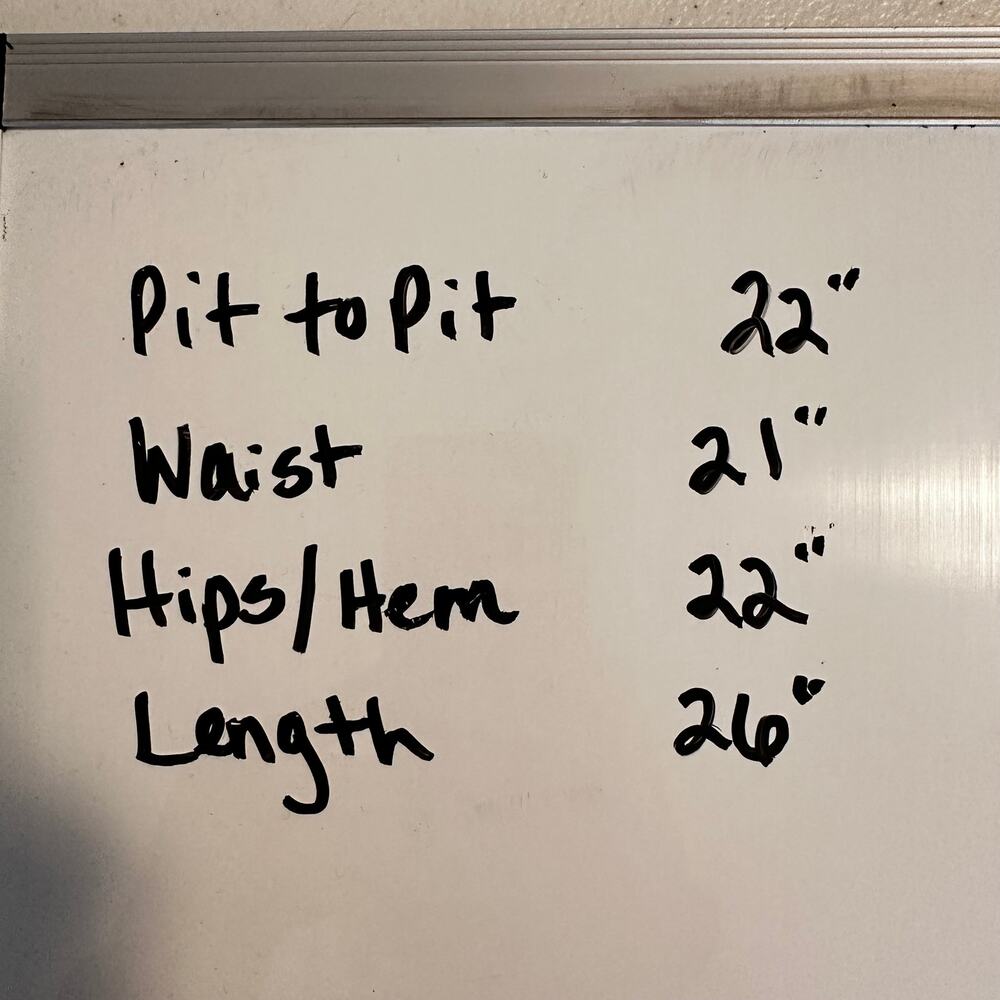 Pit to Pit 22"
Waist 21"
Hips/Hem 22"
Length 26"